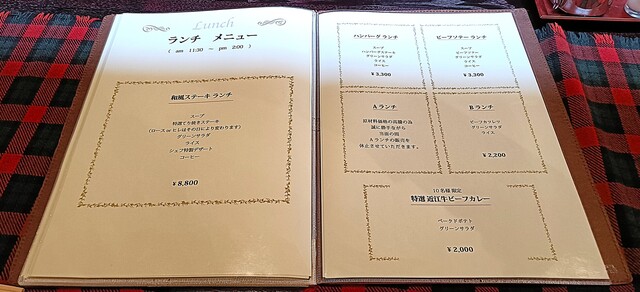 Lunch
ランチ メニュー
( am 11:30 ～ pm 2:00 )
和風ステーキ ランチ
スープ
特選てり焼きステーキ
(ロース or ヒレはその日により変わります)
グリーンサラダ
ライス
シェフ特製デザート
コーヒー
¥8,800
ハンバーグ ランチ
スープ
ハンバーグステーキ
グリーンサラダ
ライス
コーヒー
¥3,300
ビーフソテー ランチ
スープ
ビーフソテー
グリーンサラダ
ライス
コーヒー
¥3,300
A ランチ
原材料価格の高騰の為
誠に勝手ながら
当面の間
Aランチの販売を
休止させていただきます。
B ランチ
ビーフカツレツ
グリーンサラダ
ライス
¥2,200
10名様 限定
特選 近江牛ビーフカレー
ベークドポテト
グリーンサラダ
¥2,000